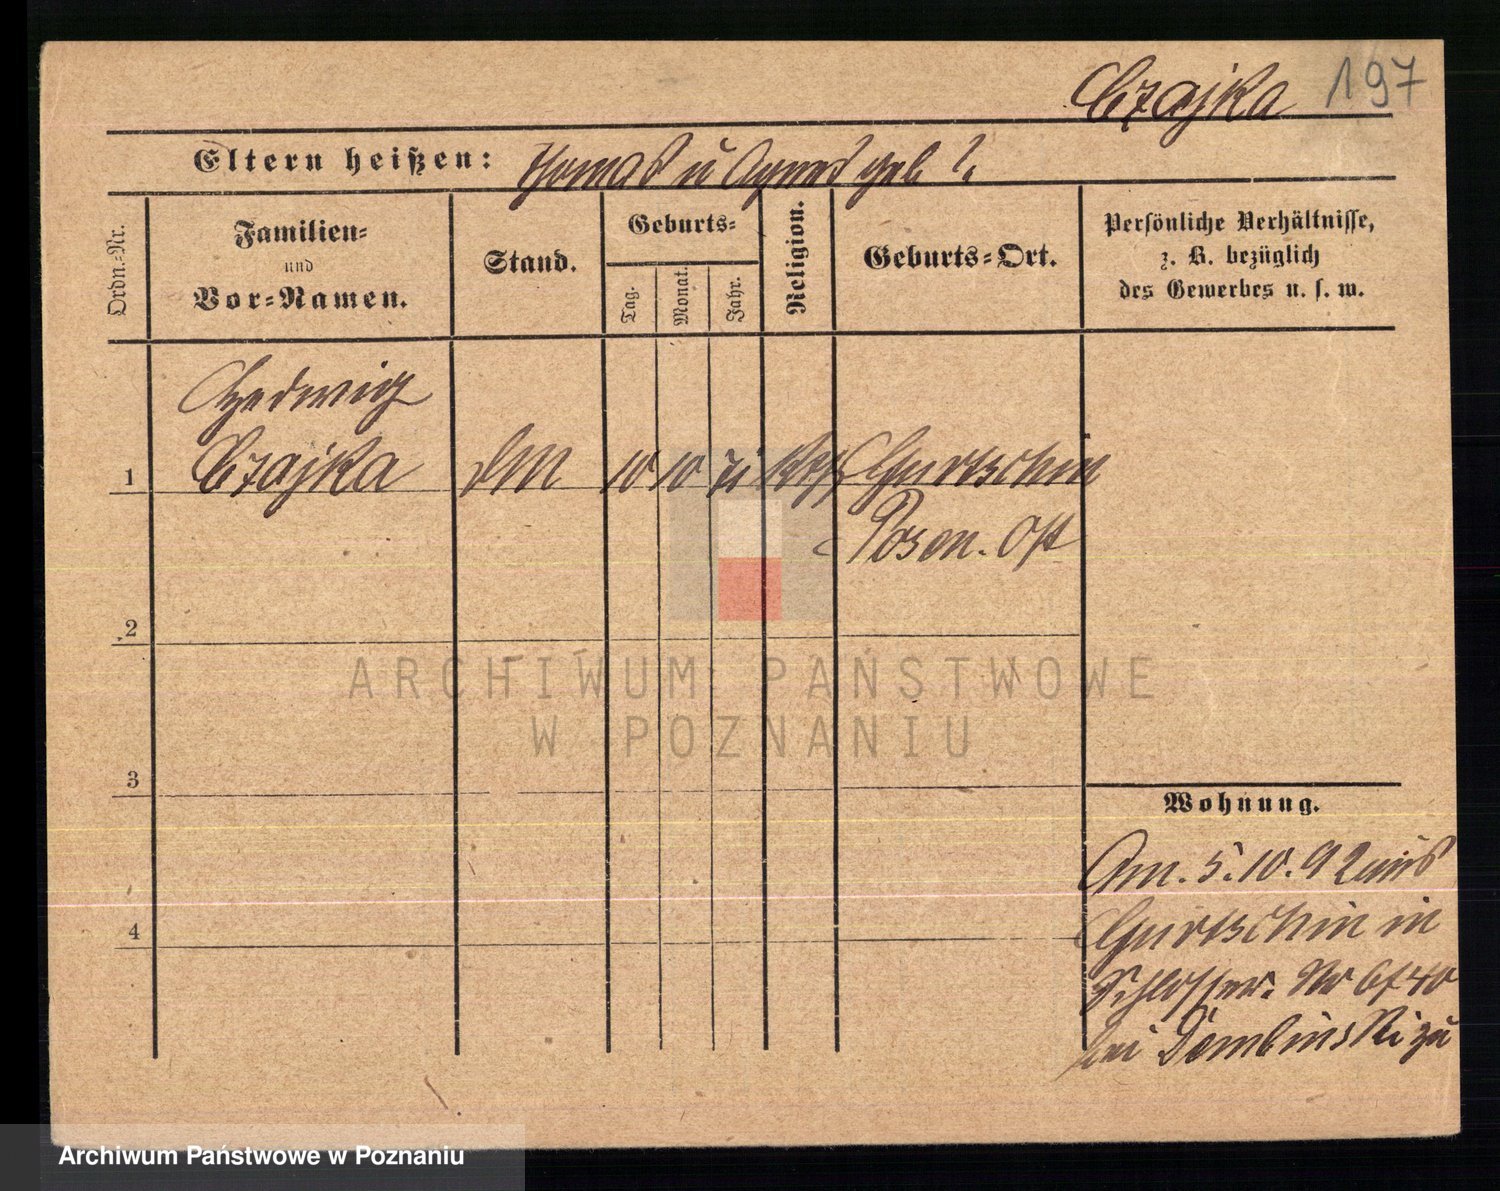 Czajka 197
Eltern heißen: Thomas u Agnes geb. ?.
Ordn.-Nr.
Familien-
und
Vor-Namen.
Stand.
Geburts-
Tag.
Monat.
Jahr.
Religion.
Geburts-Ort.
Persönliche Verhältnisse,
z. B. bezüglich
des Gewerbes u. s. w.
Hedwig
1 Czajka 10 10 71 Gurtschin
Posen. Ost
2
ARCHIWUM PAŃSTWOWE
W POZNANIU
3
Wohnung.
Am. 5.10.92 aus
4
Gurtschin in
Schlosser. No 6f40
bei Dembinski zu
Archiwum Państwowe w Poznaniu